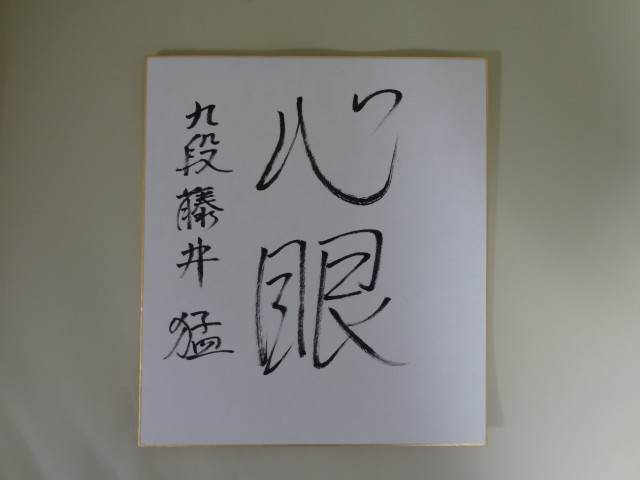 心眼
九段 藤井 猛